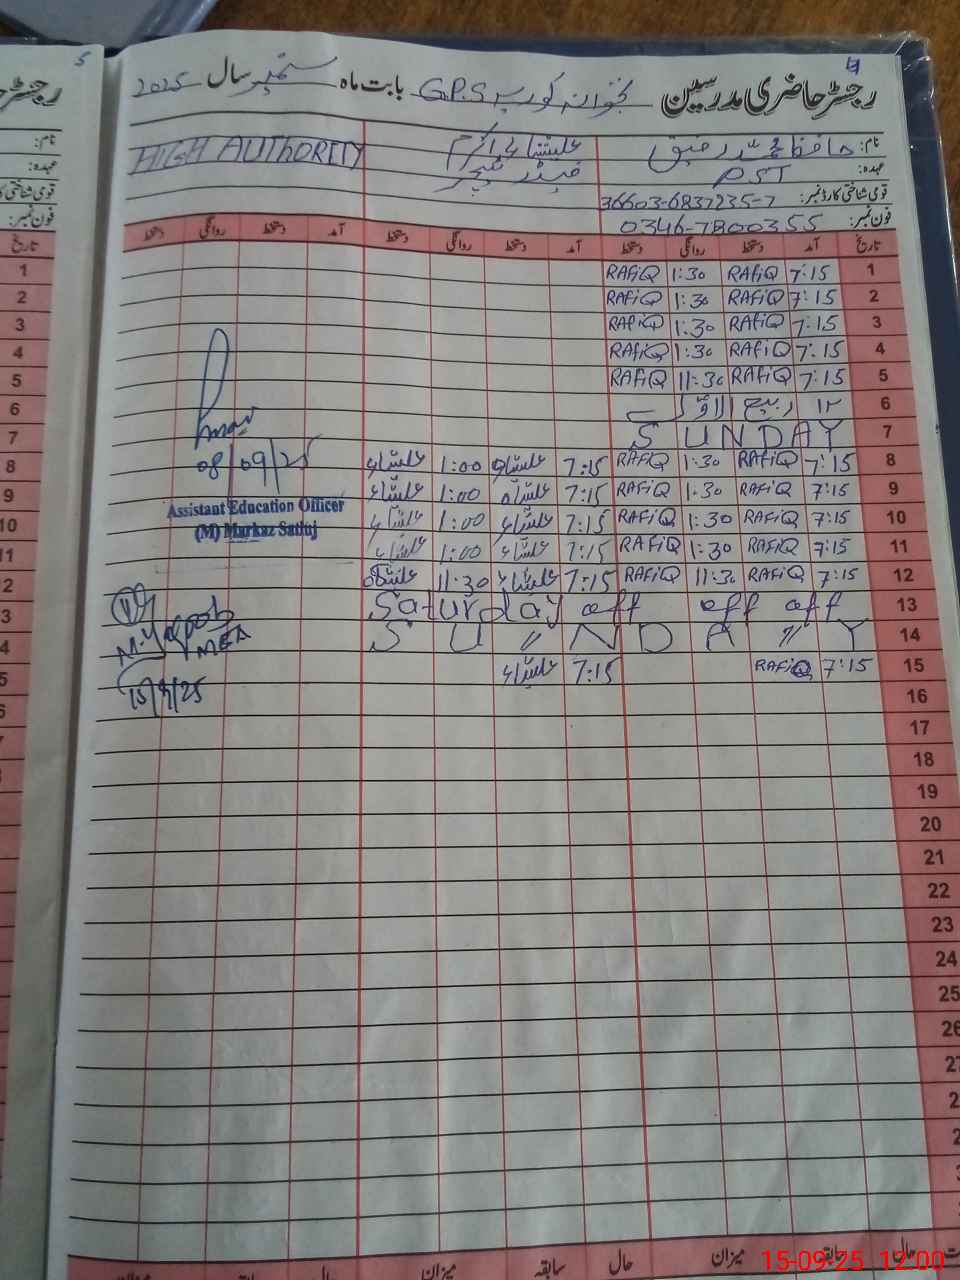 رجسٹر حاضری مدرسین G.P.S بابت ماہ ستمبر سال 2025
نام: حافظ محمد رفیق علیشاء اکرم HIGH AUTHORITY
عہدہ: PST فیڈر ٹیچر
قومی شناختی کارڈ نمبر: 36603-6837235-7
فون نمبر: 0346-7800355
تاریخ آمد دستخط روانگی دستخط آمد دستخط روانگی دستخط آمد دستخط روانگی دستخط
1 7:15 RAFiQ 1:30 RAFiQ
2 7:15 RAFiQ 1:30 RAFiQ
3 7:15 RAFiQ 1:30 RAFiQ
4 7:15 RAFiQ 1:30 RAFiQ
5 7:15 RAFiQ 11:30 RAFiQ
6 ۱۲ ربیع الاوّل
7 SUNDAY
8 7:15 RAFiQ 1:30 RAFiQ 7:15 علیشاء 1:00 علیشاء
08/09/25
9 7:15 RAFiQ 1:30 RAFiQ 7:15 علیشاء 1:00 علیشاء
Assistant Education Officer
10 7:15 RAFiQ 1:30 RAFiQ 7:15 علیشاء 1:00 علیشاء
(M) Markaz Satluj
11 7:15 RAFiQ 1:30 RAFiQ 7:15 علیشاء 1:00 علیشاء
12 7:15 RAFiQ 11:30 RAFiQ 7:15 علیشاء 11:30 علیشاء
13 Saturday off off off
14 S U // N D A // Y
M. Yaqoob
MEA
15 7:15 RAFiQ 7:15 علیشاء
15/9/25
16
17
18
19
20
21
22
23
24
25
26
27
میزان سابقہ حال میزان سابقہ حال
15-09-25 12:00